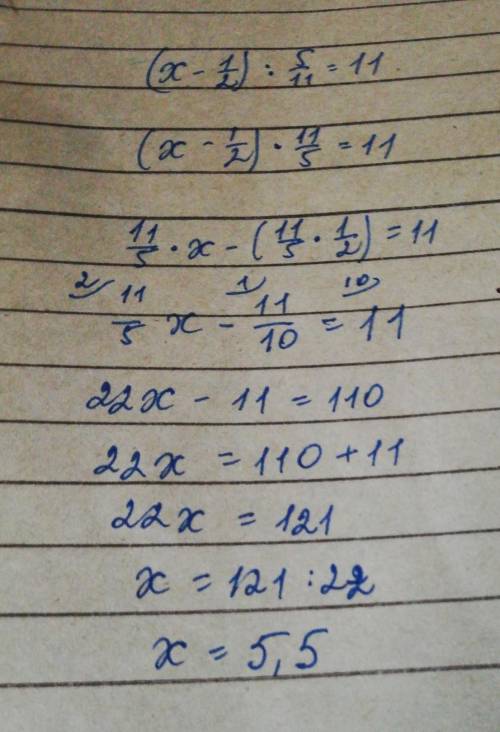 (x - 1/2) : 5/11 = 11
(x - 1/2) · 11/5 = 11
11/5 · x - (11/5 · 1/2) = 11
2) 11/5 x - 1) 11/10 = 10) 11
22x - 11 = 110
22x = 110 + 11
22x = 121
x = 121 : 22
x = 5,5